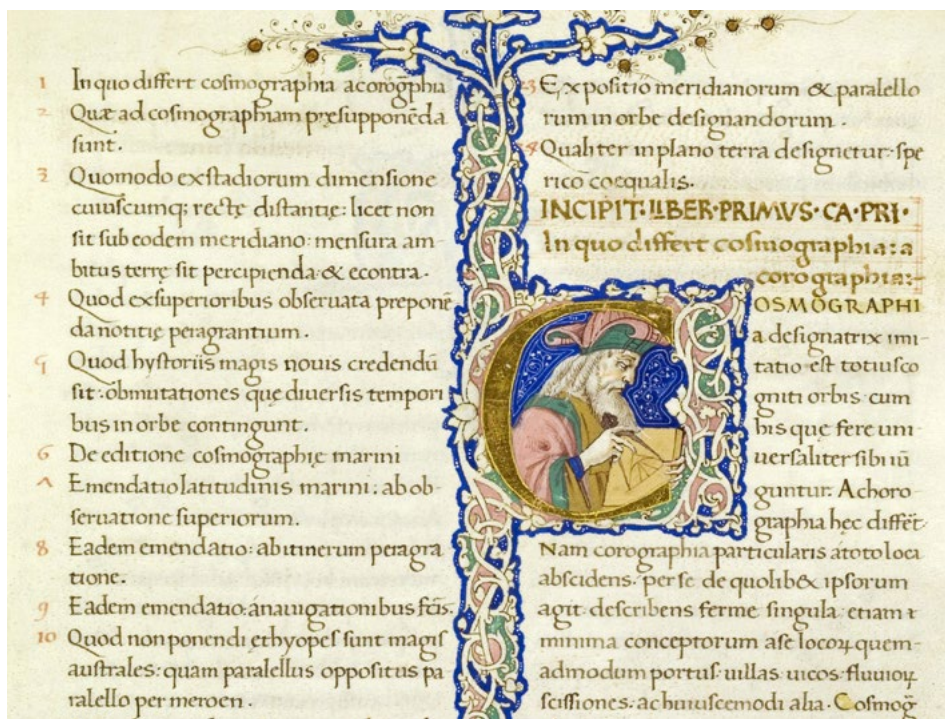 1 In quo differt cosmographia a corogr̄phia
2 Quæ ad cosmographiam presupponēda
sunt.
3 Quomodo ex stadiorum dimensione
cuiuscumq; rectę distantię: licet non
sit sub eodem meridiano: mensura am-
bitus terrę sit percipienda: & econtra.
4 Quod exsuperioribus observata preponē
da notitię peragrantium.
5 Quod hystoriis magis novis credendū
sit: ob mutationes que diversis tempori
bus in orbe contingunt.
6 De editione cosmographię marini
7 Emendatio latitudinis marini: ab ob-
servatione superiorum.
8 Eadem emendatio: ab itinerum peragra
tione.
9 Eadem emendatio: á navigationibus fcīs.
10 Quod non ponendi ethyopes sunt magis
australes: quam parallelus oppositus pa
ralelo per meroen.
23 Expositio meridianorum & paralello
rum in orbe designandorum.
24 Qualiter in plano terra designetur: spe
rico coequalis.
INCIPIT·LIBER·PRIMVS·CA·PRI·
In quo differt cosmographia: a
corographia:-
COSMOGRAPHI
a designatrix imi-
tatio est totius co
gniti orbis: cum
his que fere uni-
versaliter sibi iū
guntur. A choro-
graphia hec differt·
Nam corographia particularis a toto loca
abscidens: per se de quolibet ipsorum
agit: describens ferme singula: etiam
minima conceptorum a se locoꝝ: quem
admodum portus: villas: vicos: fluvioꝝ
scissiones: ac huiuscemodi alia. Cosmog